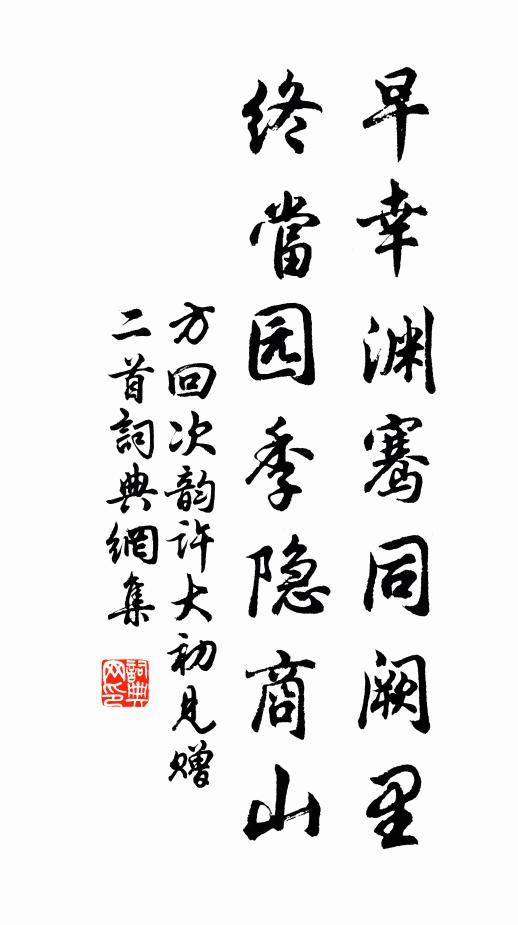 早幸渊骞同阙里
终當园季隐商山
方回次韵许大初見赠
二首詞典網集
詞典网印